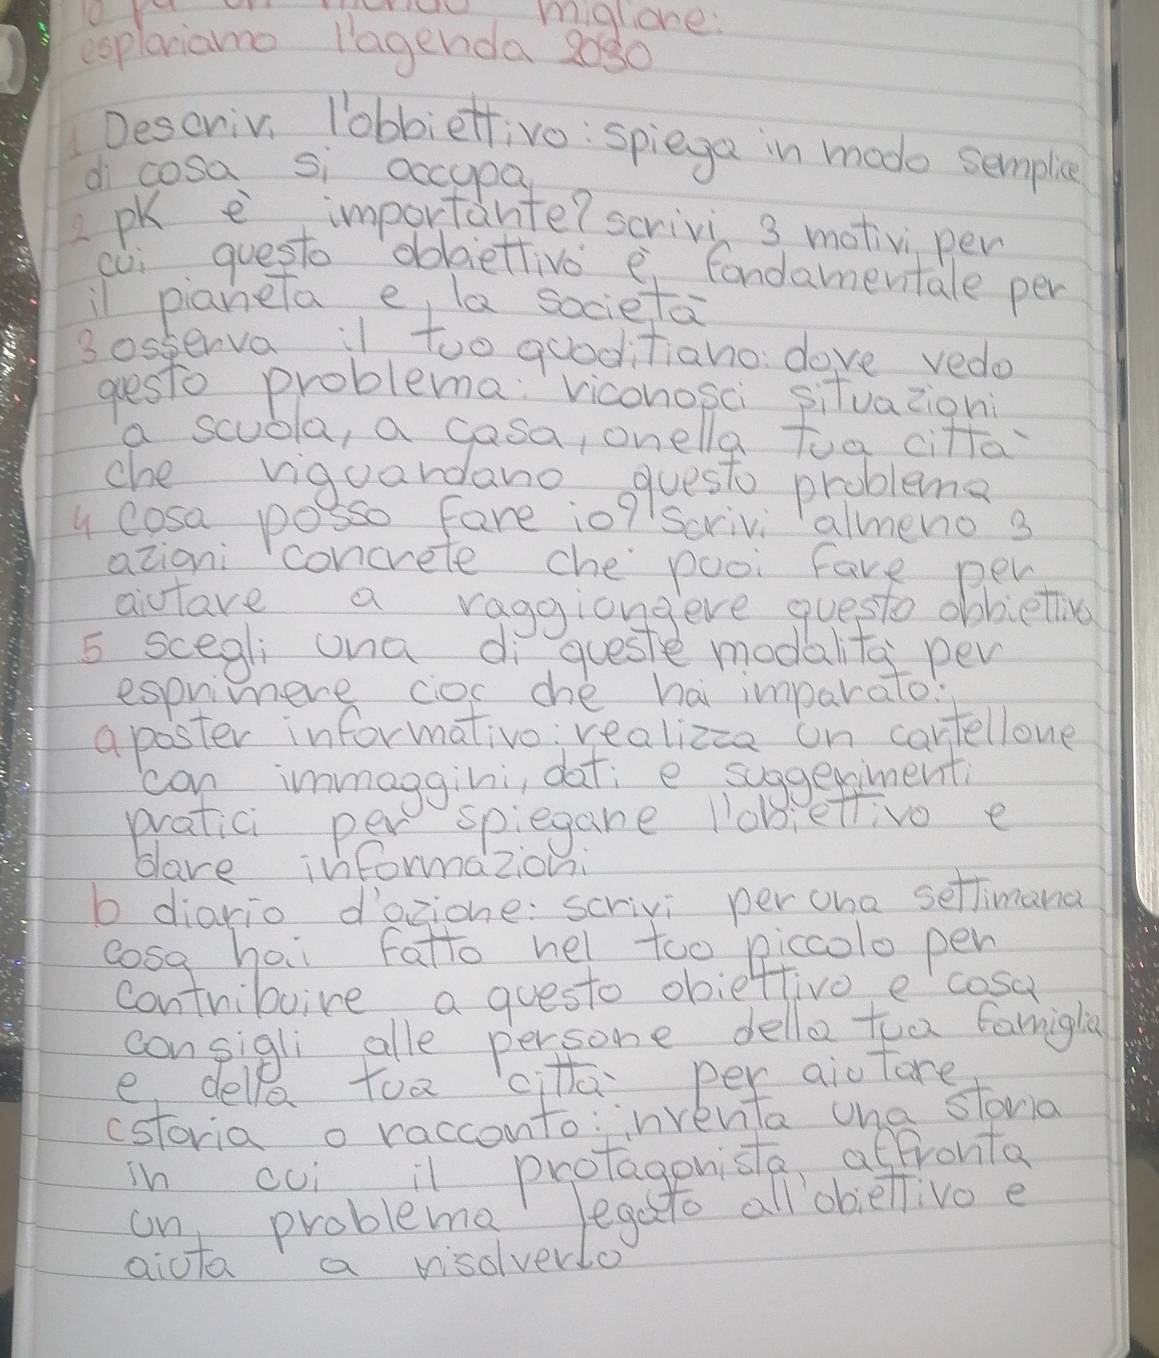 migliore:
esploriamo l'agenda 2030
1 Descrivi l'obbiettivo: spiega in modo semplice
di cosa si occupa
2 pk è importante? scrivi 3 motivi per
cui questo obbiettivo è fondamentale per
il pianeta e la società
3 osserva il tuo quoditiano: dove vedo
questo problema: riconosci situazioni
a scuola, a casa, o nella tua città
che riguardano questo problema
4 Cosa posso fare io? scrivi almeno 3
azioni concrete che puoi fare per
aiutare a raggiongere questo obbiettivo
5 scegli una di queste modalità per
esprimere che hai imparato:
a poster informativo: realizza un cartellone
con immaggini, dati e suggerimenti
pratici per spiegare l'obiettivo e
dare informazioni
b diario d'azione: scrivi per una settimana
cosa hai fatto nel tuo piccolo per
contribuire a questo obiettivo e cosa
consigli alle persone della tua famiglia
e della tua città per aiutare
c storia o racconto: inventa una storia
in cui il protagonista affronta
un problema legato all'obiettivo e
aiuta a risolverlo